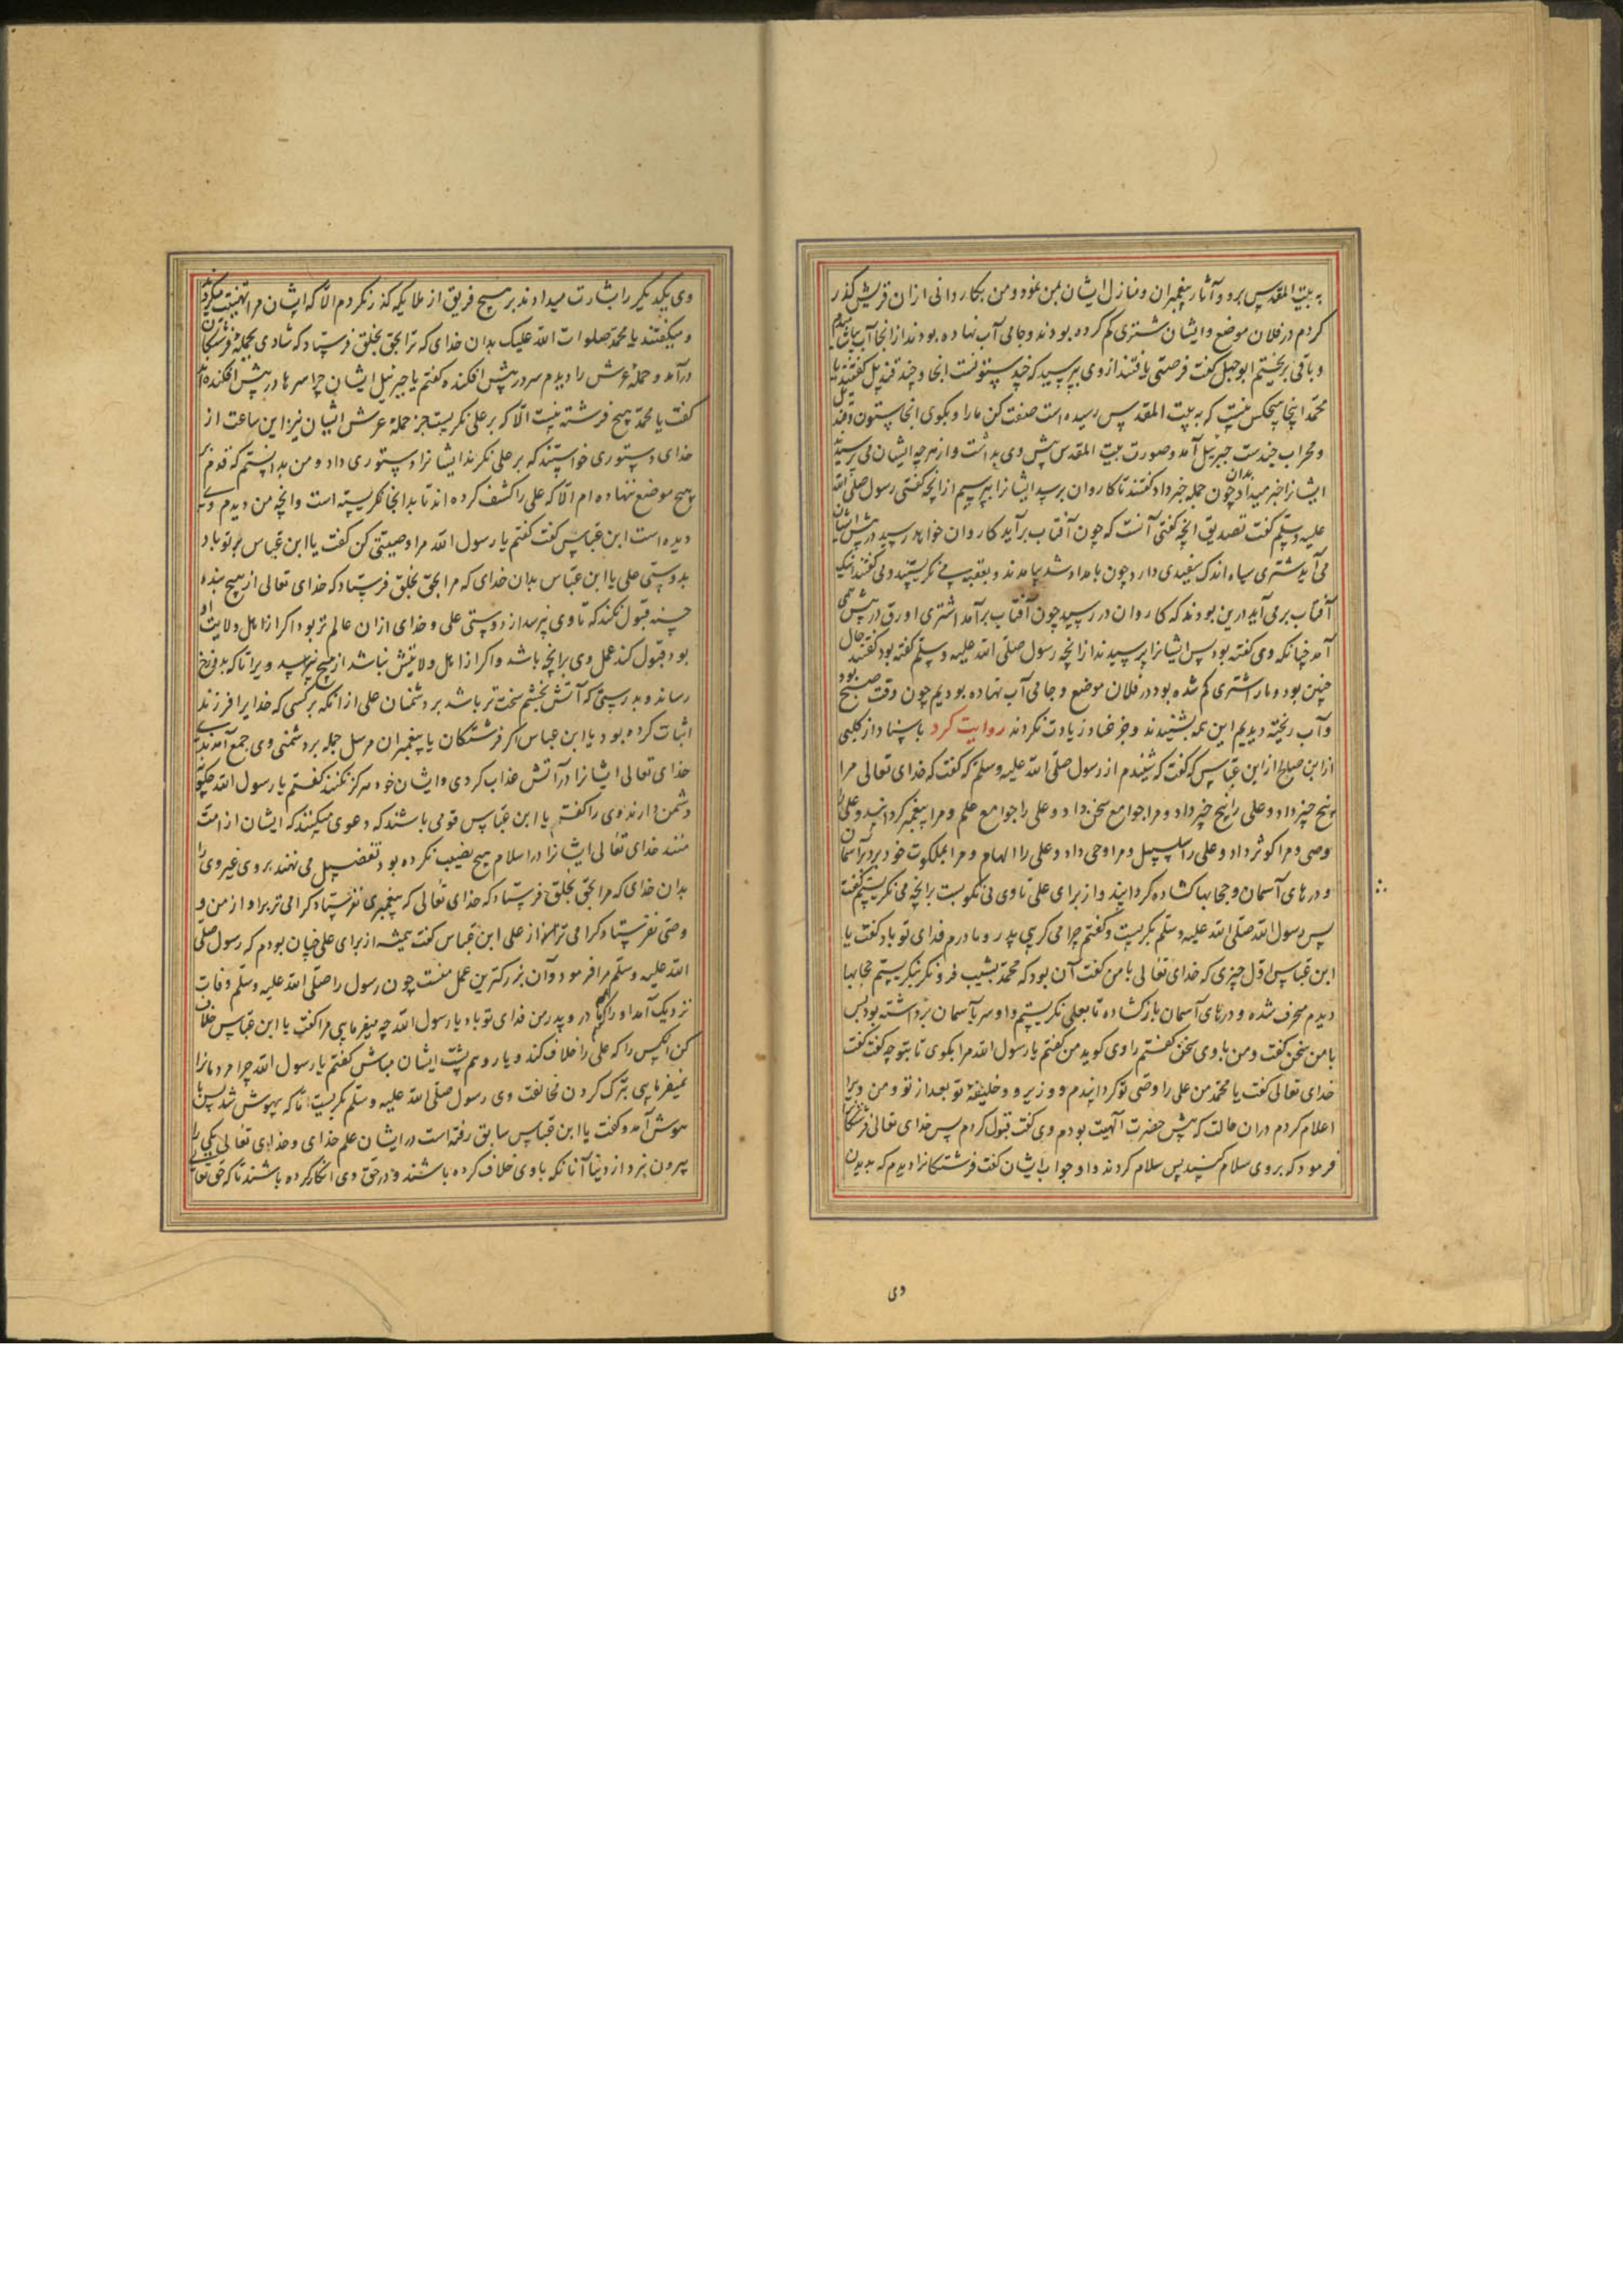 به بیت المقدس برو و آثار پیغمبران و منازل ایشان بمن نمود و من بکاروانی ازان قریش گذر
کردم در فلان موضع و ایشان شتری کم کرده بودند و جامی آب نهاده بودند از انجا آب بیاشامیدم
و باقی بریختم ابوجهل گفت فرصتی یافتند از وی بپرسید که چند ستونست انجا و چند قندیل گفتند یا
محمد اینجا هیچکس هست که به بیت المقدس رسیده است صفت کن ما را و بگوی انجا ستون و قندیل
و محراب چندست جبرییل آمد و صورت بیت المقدس پیش وی بداشت و از هرچه ایشان می پرسیدند
ایشانرا خبر میداد چون بدان جمله خبر داد گفتند تا کاروان برسد ایشانرا بپرسیم ازانچه گفتی رسول صلی الله
علیه وسلم گفت تصدیق انچه گفتی آنست که چون آفتاب برآید کاروان خواهد رسید در پیش ایشان
می آید شتری سیاه اندک سفیدی دارد چون بامداد شد بیامدند و بعقبه می نگریستند و می گفتند اینک
آفتاب برمی آید درین بودند که کاروان در رسید چون آفتاب برآمد اشتری اورق در پیش می
آمد چنانکه وی گفته بود پس ایشانرا پرسیدند ازانچه رسول صلی الله علیه وسلم گفته بود گفتند حال
چنین بود و ما را شتری کم شده بود در فلان موضع و جامی آب نهاده بودیم چون وقت صبح بود
و آب ریخته دیدیم این همه بشنیدند و جز عناد زیادت نکردند روایت کرد باسناد از کلبی
از ابن صلح از ابن عباس که گفت که شنیدم از رسول صلی الله علیه وسلم که گفت که خدای تعالی مرا
پنج چیز داد و علی را پنج چیز داد و مرا جوامع سخن داد و علی را جوامع علم و مرا پیغمبر کردانید و علی را
وصی و مرا کوثر داد و علی را سلسبیل و مرا وحی داد و علی را الهام و مرا بملکوت خود برد بر آسمان
و درهای آسمان و حجابها کشاده کردانید و از برای علی تا وی می نگریست برانچه می نگریستم گفت
پس رسول الله صلی الله علیه وسلم بگریست و گفتم چرا می گریی پدر و مادرم فدای تو باد گفت یا
ابن عباس اول چیزی که خدای تعالی با من گفت آن بود که محمد بشیب فرو نگر بنگریستم حجابها
دیدم محرف شده و درهای آسمان باز کشاده تا بعلی نگریستم و او سر بآسمان برداشته بود پس
با من سخن گفت و من با وی سخن گفتم راوی کوید من گفتم یا رسول الله مرا بکوی تا بتو چه گفت گفت
خدای تعالی گفت یا محمد من علی را وصی تو کردانیدم و وزیر و خلیفهٔ تو بعد از تو و من ویرا
اعلام کردم دران حالت که پیش حضرت الهیت بودم وی گفت قبول کردم پس خدای تعالی فرشتکانرا
فرمود که بر وی سلام کنید پس سلام کردند و او جواب ایشان گفت فرشتکانرا دیدم که بدیدن
وی
وی یکدیگر را بشارت میدادند بر هیچ فریق از ملایکه گذر نکردم الا که ایشان مرا تهنیت میکردند
و میگفتند یا محمد صلوات الله علیک بدان خدای که ترا بحق بخلق فرستاد که شادی بجمله فرشتکان
درآمد و حملهٔ عرش را دیدم سر در پیش افکنده گفتم یا جبرییل ایشان چرا سرها در پیش افکنده اند
گفت یا محمد هیچ فرشته نیست الا که بر علی نگریست جز حملهٔ عرش ایشان نیز این ساعت از
خدای دستوری خواستند که بر علی نگرند ایشانرا دستوری داد و من بدانستم که قدم بر
هیچ موضع ننهاده ام الا که علی را کشف کرده اند تا بدانجا نگریسته است و انچه من دیدم وی
دیده است ابن عباس گفت گفتم یا رسول الله مرا وصیتی کن گفت یا ابن عباس بر تو باد
بدوستی علی یا ابن عباس بدان خدای که مرا بحق بخلق فرستاد که خدای تعالی از هیچ بنده
حسنه قبول نکند که تا وی نپرسد از دوستی علی و خدای ازان عالم تر بود اگر از اهل ولایت او
بود قبول کند عمل وی برانچه باشد و اگر از اهل ولایتش نباشد از هیچ نپرسد ویرا تا که بدوزخ
رساند و بدرستی که آتش بخشم سخت تر باشد بر دشمنان علی از انکه بر کسی که خدایرا فرزند
اثبات کرده بود یا ابن عباس اگر فرشتکان یا پیغمبران مرسل جمله بر دشمنی وی جمع آمدندی
خدای تعالی ایشانرا در آتش عذاب کردی و ایشان خود هرگز نکنند گفتم یا رسول الله چگونه
دشمن دارند وی را گفت یا ابن عباس قومی باشند که دعوی میکنند که ایشان از امت
منند خدای تعالی ایشانرا در اسلام هیچ نصیب نکرده بود تفضیل می نهند بر وی غیر وی را
بدان خدای که مرا بحق بخلق فرستاد که خدای تعالی که پیغمبری نفرستاد کرامی تر براو از من و
وصی نفرستاد کرامی تر براو از علی ابن عباس گفت همیشه از برای علی چنان بودم که رسول صلی
الله علیه وسلم مرا فرمود و آن بزرکترین عمل منست چون رسول را صلی الله علیه وسلم وفات
نزدیک آمد او را گفتم مادر و پدر من فدای تو باد یا رسول الله چه میفرمایی مرا گفت یا ابن عباس خلاف
کن انکس را که علی را خلاف کند و یار و هم پشت ایشان مباش گفتم یا رسول الله چرا مردمانرا
نمیفرمایی بترک کردن مخالفت وی رسول صلی الله علیه وسلم بگریست تا که بیهوش شد پس با
هوش آمد و گفت یا ابن عباس سابق رفته است در ایشان علم خدای و خدای تعالی یکی را
بیرون نبرد از دنیا آنانکه با وی خلاف کرده باشند و در حق وی انکار کرده باشند تا که حق تعالی